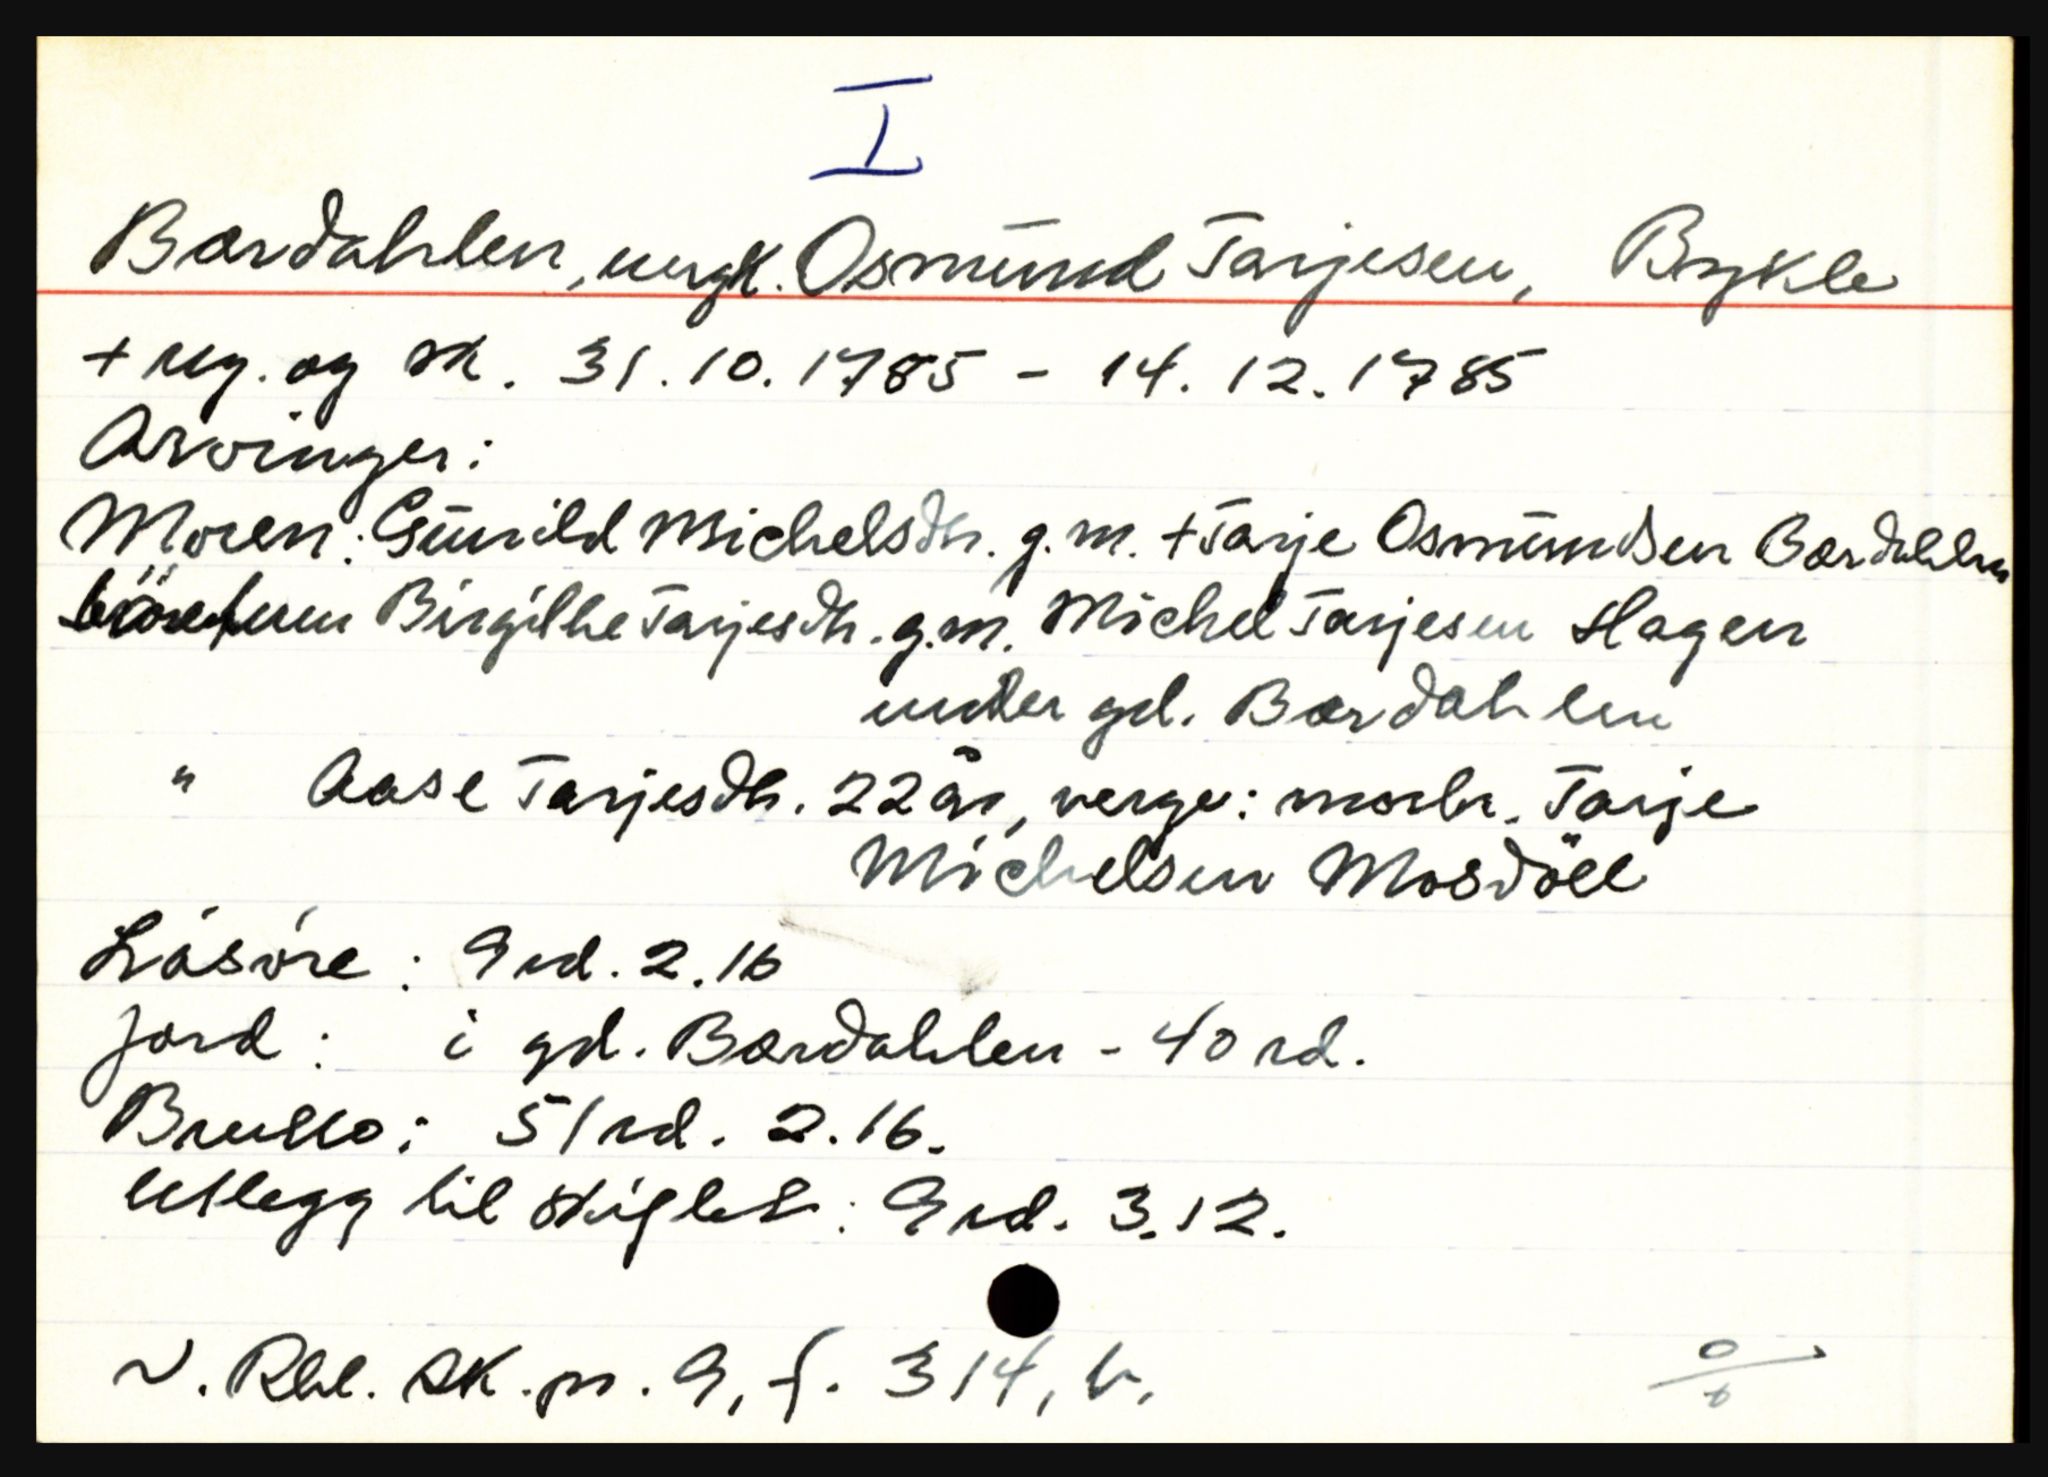 I
Bærdahlen, ungk. Osmund Tarjesen, Bykle
+ reg. og sk. 31.10.1785 - 14.12.1785
Arvinger:
Moren: Gunild Michelsdtr. g.m. + Tarje Osmundsen Bærdahlen
Birgithe Tarjesdtr. g.m. Michel Tarjesen Hagen
under gd. Bærdahlen
" Aase Tarjesdtr. 22 år, verge: morbr. Tarje
Michelsen Mosdöll
Løsøre: 9 rd. 2.16
Jord: i gd. Bærdahlen - 40 rd.
Brutto: 51 rd. 2.16.
Utlegg til skiftet: 9 rd. 3.12.
N. Rbl. sk.pr. 9, f. 314, b.